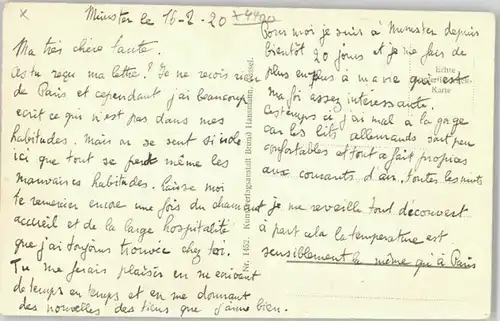 Münster le 16-2-20
Ma très chère tante.
As tu reçu ma lettre? Je ne reçois rien
de Paris et cependant j'ai beaucoup
écrit ce qui n'est pas dans mes
habitudes. Mais on se sent si isolé
ici que tout se perd même les
mauvaises habitudes. Laisse moi
te remercier encore une fois du charmant
accueil et de la large hospitalité
que j'ai toujours trouvée chez toi.
Tu me ferais plaisir en m'écrivant
de temps en temps et en me donnant
des nouvelles des tiens que j'aime bien.
Nr. 1452. Kunstverlagsanstalt Bruno Hansmann, Cassel.
Echte
Karte
Pour moi je suis à Munster depuis
bientôt 20 jours et je me fais de
plus en plus à ma vie qui est
ma foi assez intéressante.
Ces temps ci j'ai mal à la gorge
car les lits allemands sont peu
confortables et tout à fait propices
aux courants d'air. Toutes les nuits
je me reveille tout découvert
à part cela la température est
sensiblement la même qu'à Paris